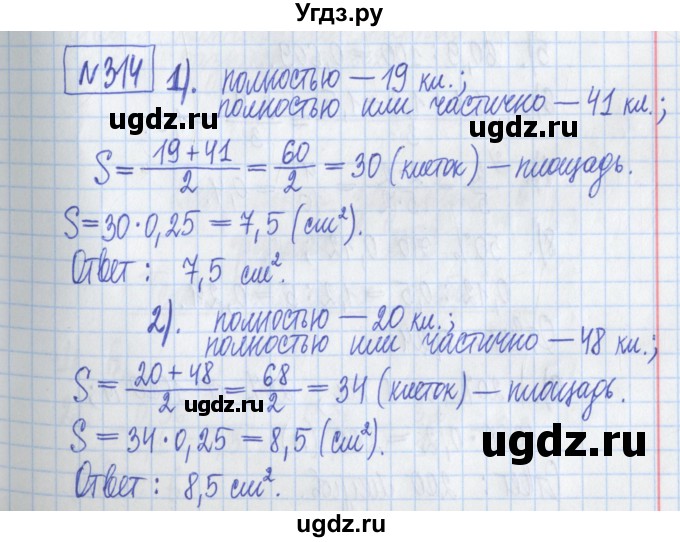 Угдз.ру
№314 1). полностью — 19 кл.;
полностью или частично — 41 кл.;
ugdz.ru
ugdz.ru
S = 19 + 41 / 2 = 60 / 2 = 30 (клеток) — площадь.
S = 30 · 0,25 = 7,5 (см²).
Ответ: 7,5 см².
2). полностью — 20 кл.;
полностью или частично — 48 кл.;
S = 20 + 48 / 2 = 68 / 2 = 34 (клеток) — площадь.
ugdz.ru
S = 34 · 0,25 = 8,5 (см²).
ugdz.ru
Ответ: 8,5 см².
ugdz.ru